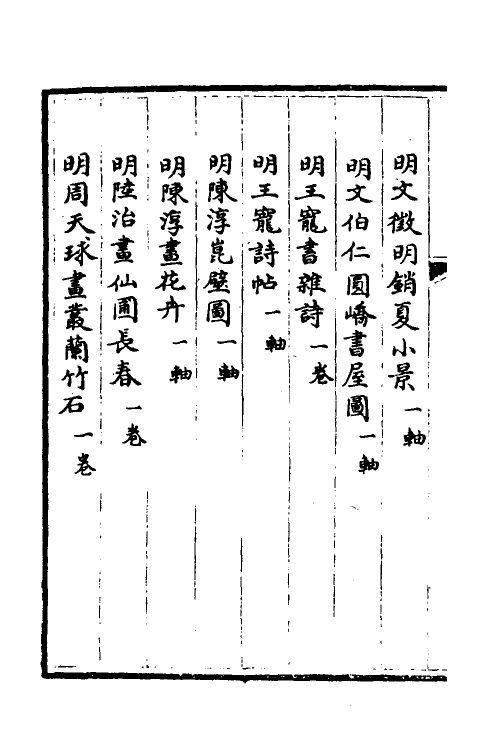 明文徵明銷夏小景一軸
明文伯仁圓嶠書屋圖一軸
明王寵書雜詩一卷
明王寵詩帖一軸
明陳淳崑壁圖一軸
明陳淳畫花卉一軸
明陸治畫仙圃長春一卷
明周天球畫叢蘭竹石一卷